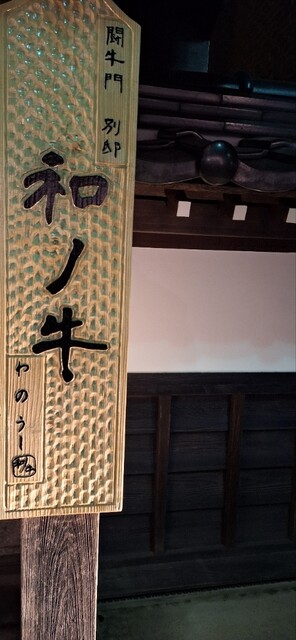 闘牛門 別邸
和ノ牛
わのうし